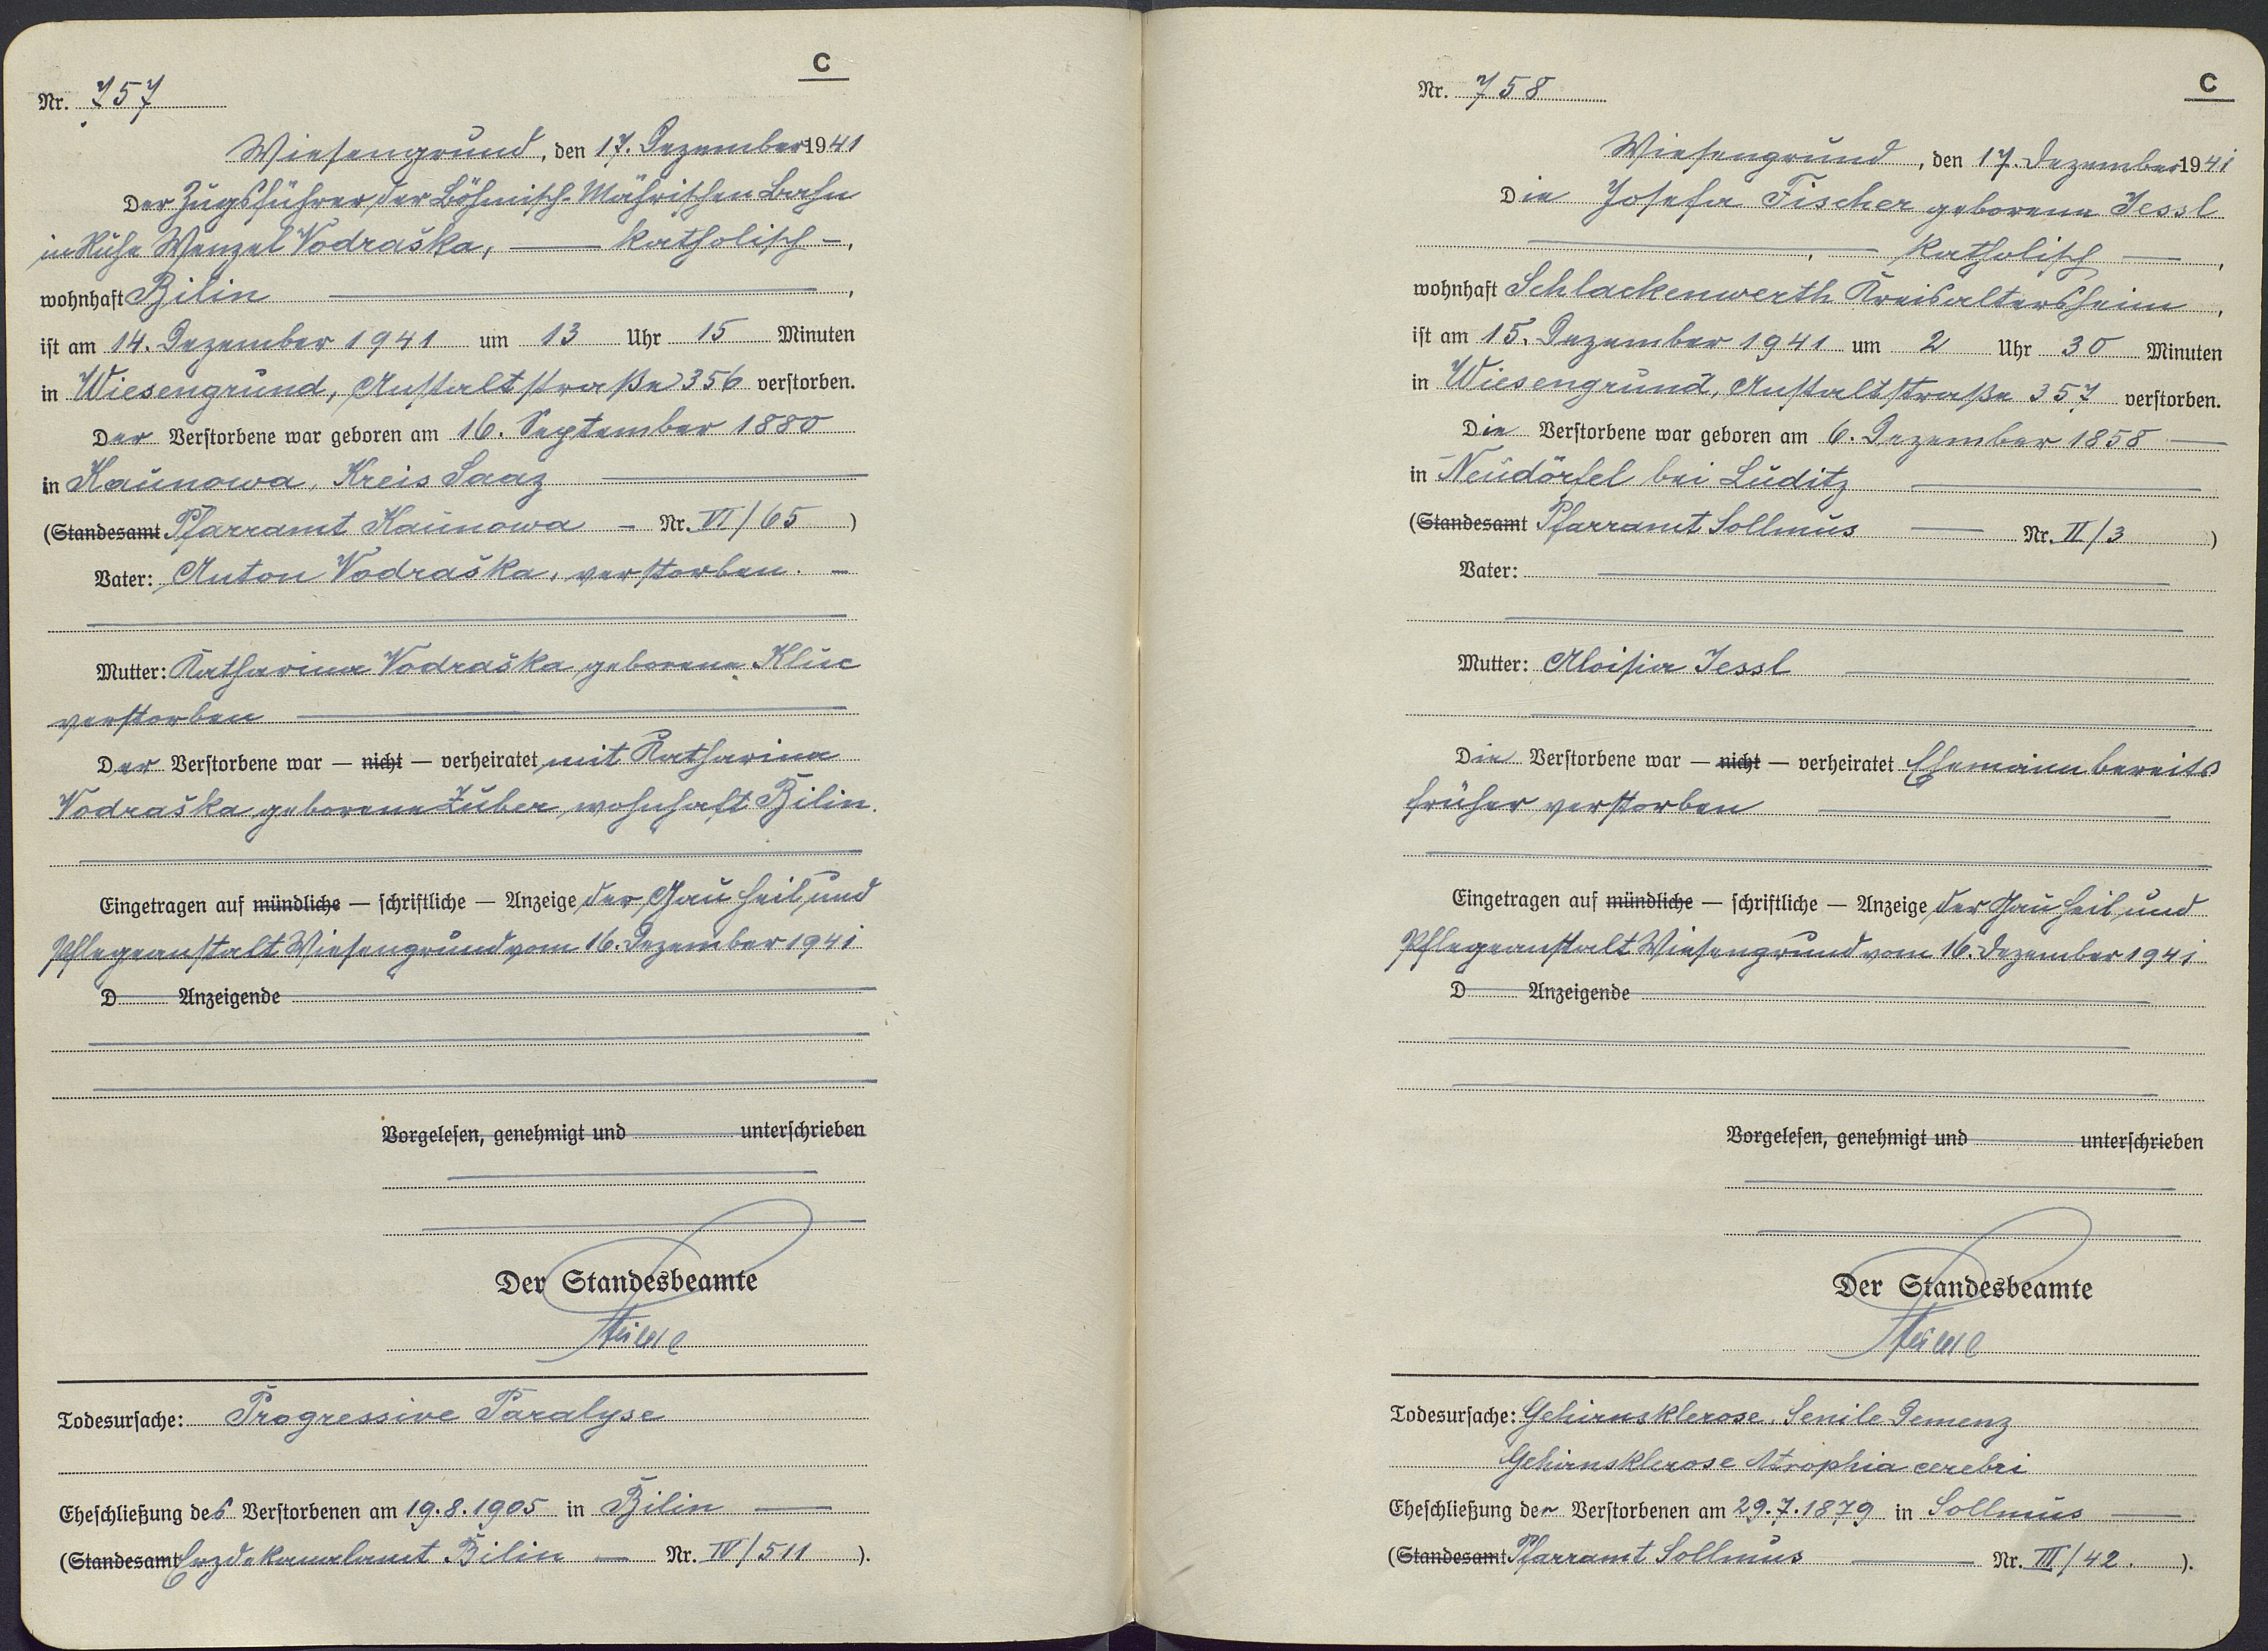 C
Nr. 757
Wiesengrund, den 17. Dezember 1941
Der Zugsführer der Böhmisch-Mährischen Bahn
in Ruhe Wenzel Vodraška, — katholisch —,
wohnhaft Bilin —,
ist am 14. Dezember 1941 um 13 Uhr 15 Minuten
in Wiesengrund, Anstaltstraße 356 verstorben.
Der Verstorbene war geboren am 16. September 1880
in Kaunowa, Kreis Saaz —
(Standesamt Pfarramt Kaunowa — Nr. VI/65)
Vater: Anton Vodraška, verstorben. —
Mutter: Katharina Vodraška geborene Kluc
verstorben —
Der Verstorbene war — nicht — verheiratet mit Katharina
Vodraška geborene Zuber, wohnhaft Bilin.
Eingetragen auf mündliche — schriftliche — Anzeige der Gau Heil und
Pflegeanstalt Wiesengrund vom 16. Dezember 1941
D Anzeigende
Vorgelesen, genehmigt und unterschrieben
Der Standesbeamte
Todesursache: Progressive Paralyse
Eheschließung des Verstorbenen am 19.8.1905 in Bilin —
(Standesamt Erzdekanalamt Bilin — Nr. IV/511).
C
Nr. 758
Wiesengrund, den 17. Dezember 1941
Die Josefa Fischer geborene Jessl
—, — katholisch —,
wohnhaft Schlackenwerth Kreisaltersheim,
ist am 15. Dezember 1941 um 2 Uhr 30 Minuten
in Wiesengrund, Anstaltstraße 357 verstorben.
Die Verstorbene war geboren am 6. Dezember 1858 —
in Neudörfel bei Luditz —
(Standesamt Pfarramt Sollmus — Nr. II/3)
Vater: —
Mutter: Aloisia Jessl —
Die Verstorbene war — nicht — verheiratet Ehemann bereits
früher verstorben —
Eingetragen auf mündliche — schriftliche — Anzeige der Gau Heil und
Pflegeanstalt Wiesengrund vom 16. Dezember 1941
D Anzeigende
Vorgelesen, genehmigt und unterschrieben
Der Standesbeamte
Todesursache: Gehirnsklerose, Senile Demenz
Gehirnsklerose Atrophia cerebri
Eheschließung der Verstorbenen am 29.7.1879 in Sollmus —
(Standesamt Pfarramt Sollmus — Nr. III/42.).